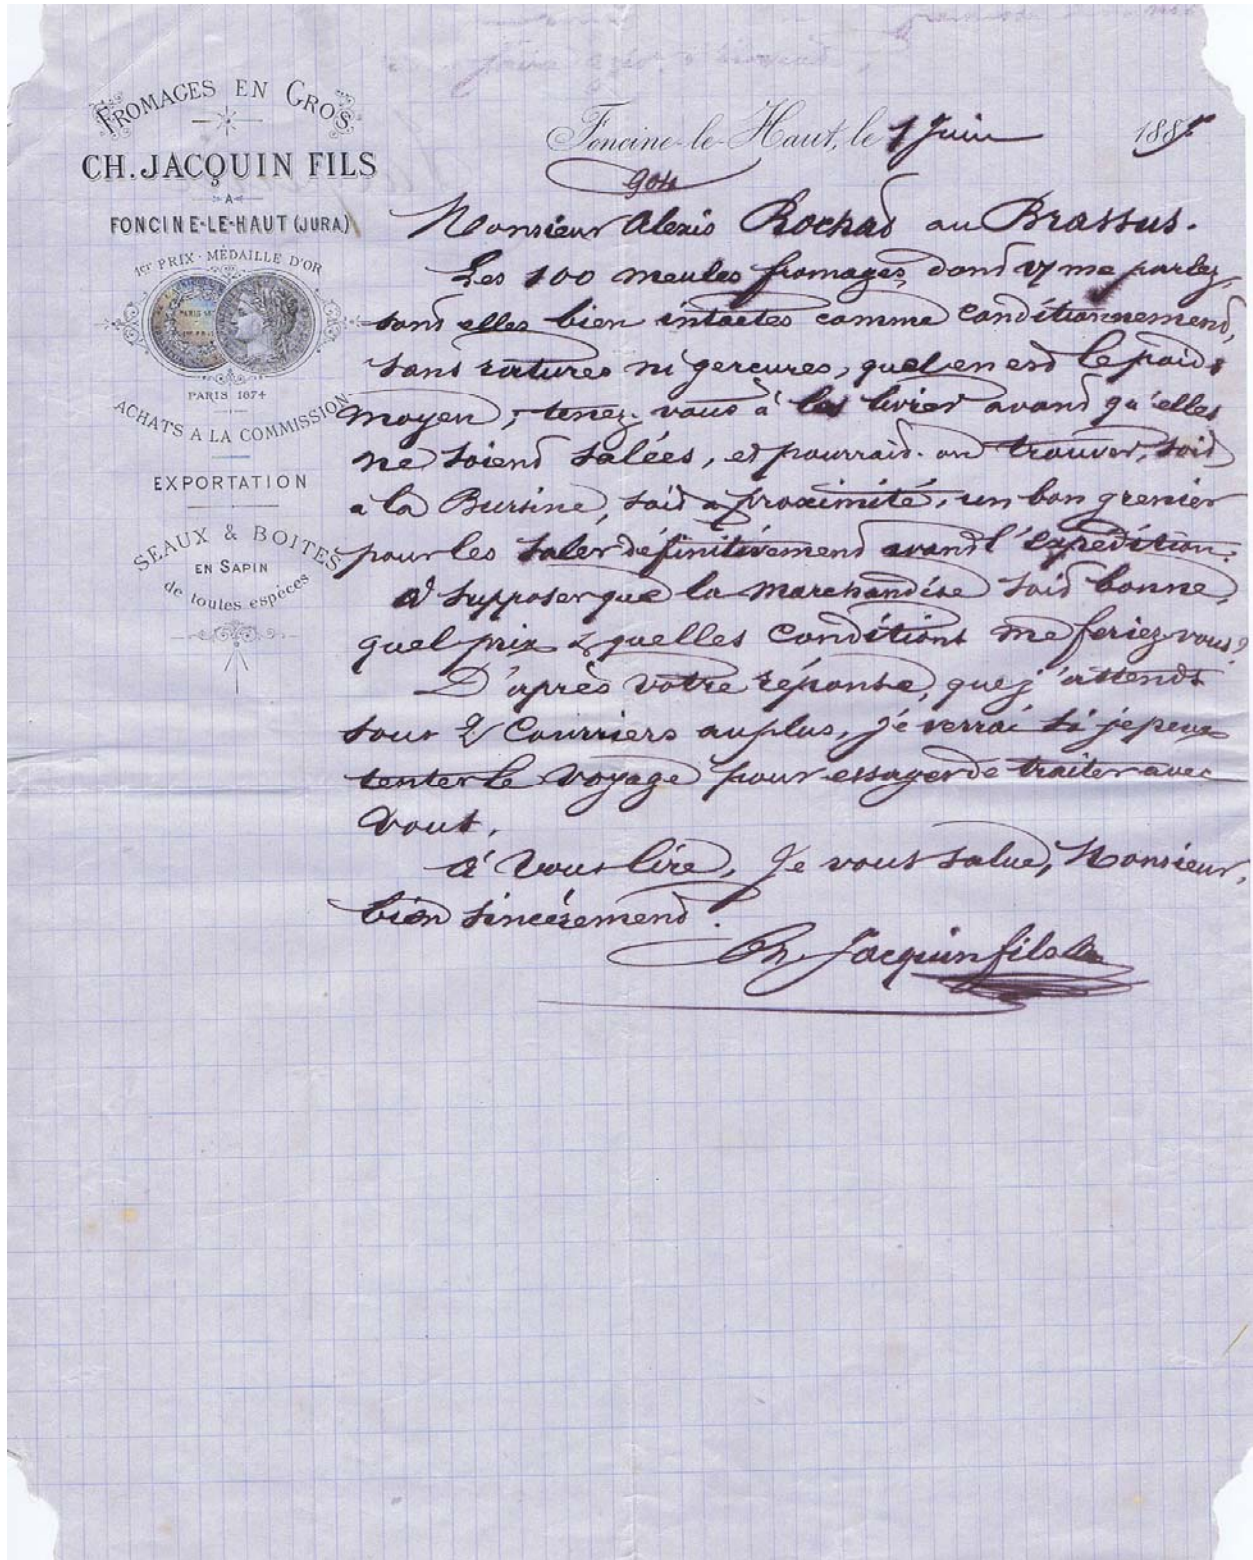 FROMAGES EN GROS
CH. JACQUIN FILS
A
FONCINE-LE-HAUT (JURA)
1er PRIX · MÉDAILLE D'OR
PARIS 1874
ACHATS A LA COMMISSION
EXPORTATION
SEAUX & BOITES
EN SAPIN
de toutes espèces
Foncine-le-Haut, le 1 Juin 188
904
Monsieur Alexis Rochat au Brassus.
Les 100 meules fromages, dont me parlez,
sont elles bien intactes comme conditionnement,
sans ni gerçures, quel en est le poids
moyen, tenez-vous à les livrer avant qu'elles
ne soient salées, et pourrait-on trouver, soit
a la Bursine, soit a proximité, un bon grenier
pour les saler définitivement avant l'expédition.
A supposer que la marchandise soit bonne,
quel prix & quelles conditions me feriez-vous?
D'après votre réponse, que j'attends
sous 2 Courriers au plus, je verrai si je peux
tenter le voyage pour essayer de traiter avec
vous.
A vous lire, Je vous salue, Monsieur,
bien sincèrement.
Ch. Jacquin fils